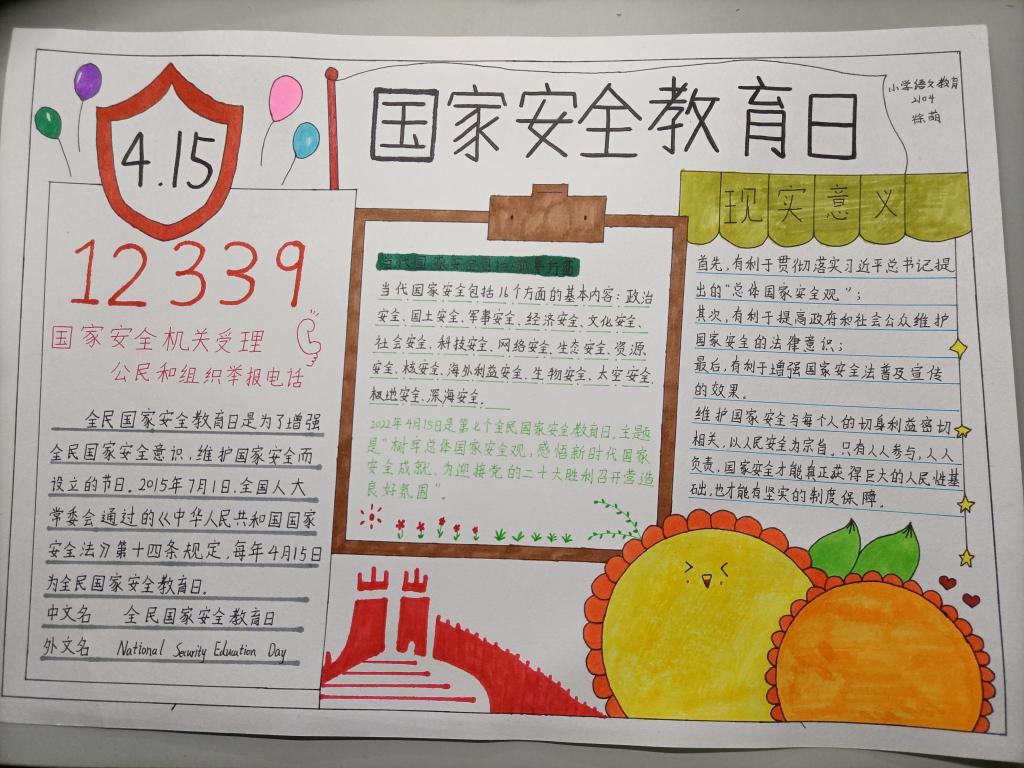 国家安全教育日
小学语文教育
2104
徐萌
4.15
12339
国家安全机关受理
公民和组织举报电话
全民国家安全教育日是为了增强
全民国家安全意识，维护国家安全而
设立的节日。2015年7月1日，全国人大
常委会通过的《中华人民共和国国家
安全法》第十四条规定，每年4月15日
为全民国家安全教育日。
中文名 全民国家安全教育日
外文名 National Security Education Day
当代国家安全包括16个方面的基本内容：政治
安全、国土安全、军事安全、经济安全、文化安全、
社会安全、科技安全、网络安全、生态安全、资源、
安全、核安全、海外利益安全、生物安全、太空安全、
极进安全、深海安全。
2022年4月15日是第七个全民国家安全教育日，主题
是“树牢总体国家安全观，感悟新时代国家
安全成就，为迎接党的二十大胜利召开营造
良好氛围”。
现实意义
首先，有利于贯彻落实习近平总书记提
出的“总体国家安全观”；
其次，有利于提高政府和社会公众维护
国家安全的法律意识；
最后，有利于增强国家安全法普及宣传
的效果。
维护国家安全与每个人的切身利益密切
相关，以人民安全为宗旨。只有人人参与，人人
负责，国家安全才能真正获得巨大的人民性基
础，也才能有坚实的制度保障。